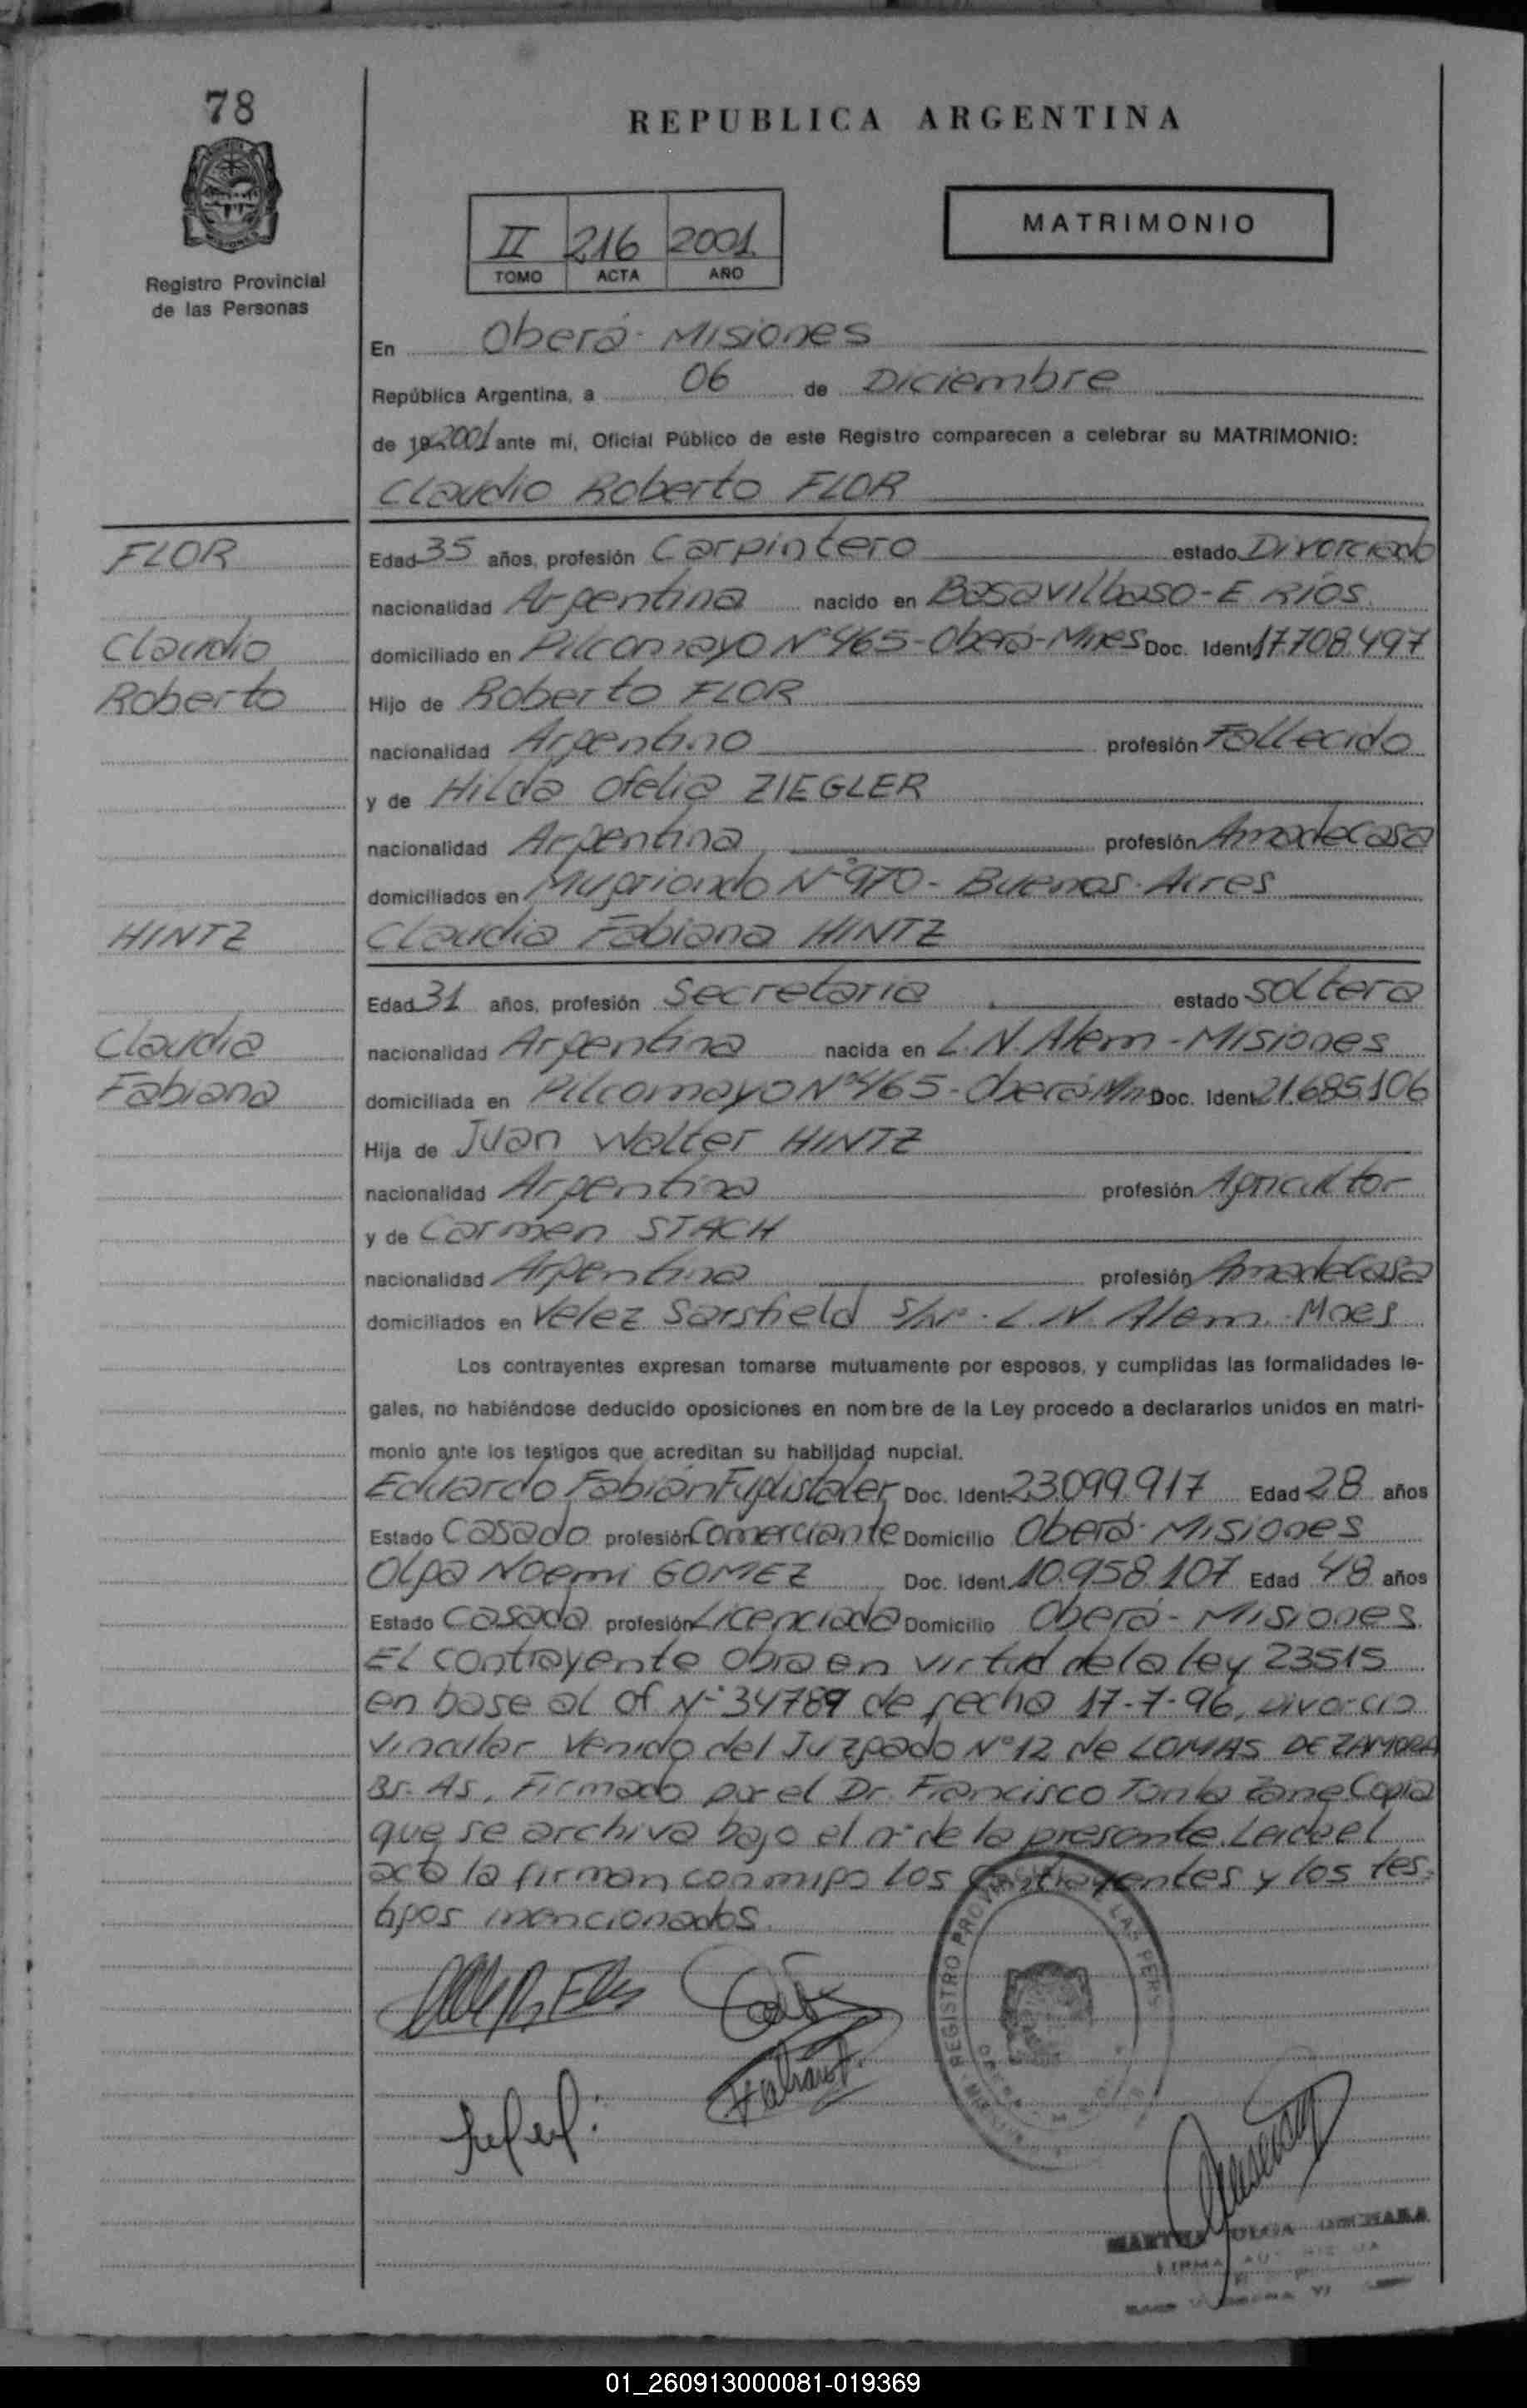 78
REPUBLICA ARGENTINA
Registro Provincial
de las Personas
II 216 2001
TOMO ACTA AÑO
MATRIMONIO
En Oberá - Misiones
República Argentina, a 06 de Diciembre
de 19 2001 ante mí, Oficial Público de este Registro comparecen a celebrar su MATRIMONIO:
Claudio Roberto FLOR
FLOR
Edad 35 años, profesión Carpintero estado Divorciado
nacionalidad Argentina nacido en Basavilbaso - E RIOS
Claudio
domiciliado en Pilcomayo Nº 465 - Oberá - Mnes Doc. Ident. 17.708.497
Roberto
Hijo de Roberto FLOR
nacionalidad Argentino profesión Fallecido
y de Hilda Ofelia ZIEGLER
nacionalidad Argentina profesión Amadecasa
domiciliados en Nº 970 - Buenos Aires
HINTZ
Claudia Fabiana HINTZ
Edad 31 años, profesión Secretaria estado Soltera
Claudia
nacionalidad Argentina nacida en L. N. Alem - Misiones
Fabiana
domiciliada en Pilcomayo Nº 465 - Oberá Mn Doc. Ident. 21.685.106
Hija de Juan Walter HINTZ
nacionalidad Argentina profesión Agricultor
y de Carmen STACH
nacionalidad Argentina profesión Amadecasa
domiciliados en Velez Sarsfield s/nº - L. N. Alem. - Mnes
Los contrayentes expresan tomarse mutuamente por esposos, y cumplidas las formalidades le-
gales, no habiéndose deducido oposiciones en nombre de la Ley procedo a declararlos unidos en matri-
monio ante los testigos que acreditan su habilidad nupcial.
Eduardo Fabián Doc. Ident. 23.099.917 Edad 28 años
Estado Casado profesión Comerciante Domicilio Oberá - Misiones
Olga Noemi GOMEZ Doc. Ident. 10.958.107 Edad 48 años
Estado Casada profesión Licenciada Domicilio Oberá - Misiones
El contrayente Obra en virtud de la ley 23515
en base al of Nº 34789 de fecha 17-7-96, Divorcio
Vincular Venido del Juzgado Nº 12 de LOMAS DE ZAMORA
Bs. As, Firmado por el Dr. Francisco Copia
que se archiva bajo el nº de la presente. Leida el
acta la firman conmigo los contrayentes y los tes-
tigos mencionados.
REGISTRO
MARTHA OLGA
01_260913000081-019369